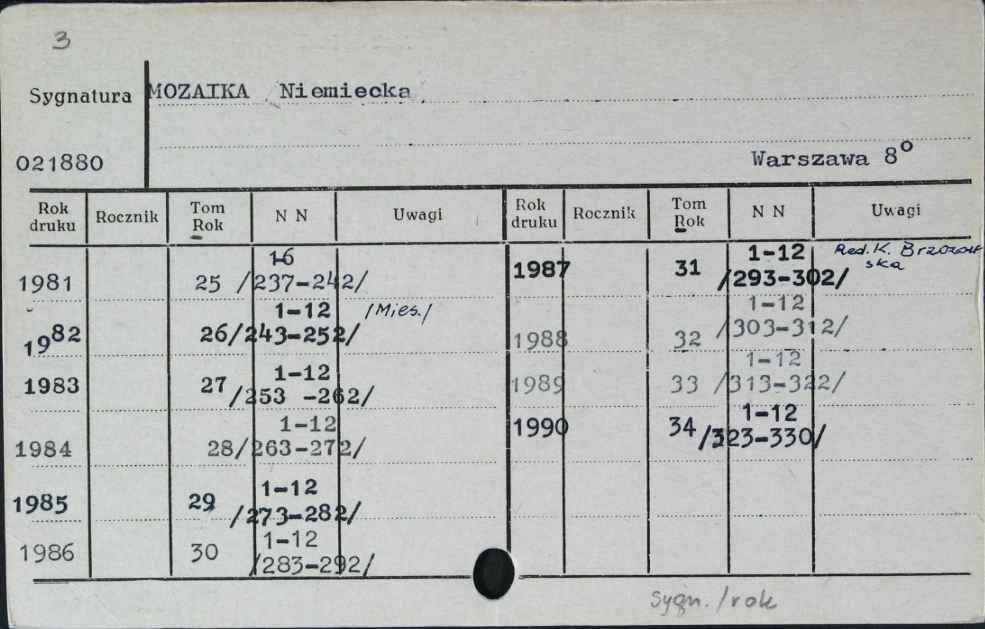 3
Sygnatura MOZAIKA Niemiecka
021880 Warszawa 8°
Rok druku Rocznik Tom Rok N N Uwagi Rok druku Rocznik Tom Rok N N Uwagi
1981 25 1-6 /237-242/
1982 26 1-12 /243-252/ /Mies./
1983 27 1-12 /253 -262/
1984 28 1-12 /263-272/
1985 29 1-12 /273-282/
1986 30 1-12 /283-292/
1987 31 1-12 /293-302/ Red. K. Brzozowska
1988 32 1-12 /303-312/
1989 33 1-12 /313-322/
1990 34 1-12 /323-330/
Sygn. /rok